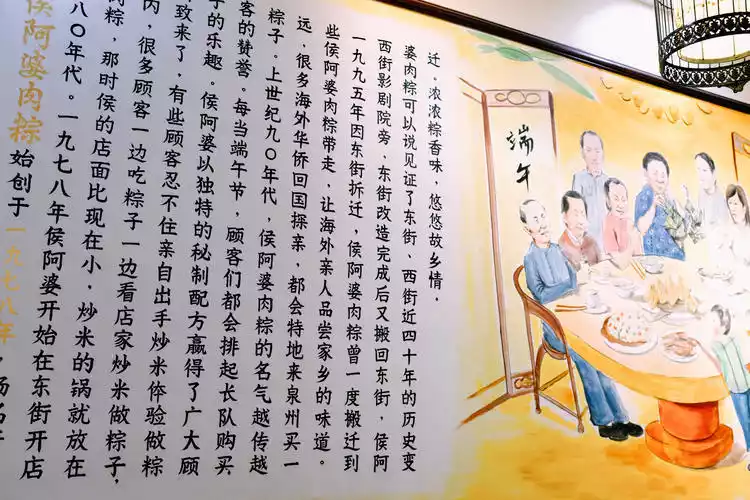 侯阿婆肉粽始创于一九七八年，
八〇年代。一九七八年侯阿婆开始在东街开店
肉粽，那时侯的店面比现在小，炒米的锅就放在
内，很多顾客一边吃粽子一边看店家炒米做粽子，
致来了，有些顾客忍不住亲自出手炒米体验做粽
子的乐趣。侯阿婆以独特的秘制配方赢得了广大顾
客的赞誉。每当端午节，顾客们都会排起长队购买
粽子。上世纪九〇年代，侯阿婆肉粽的名气越传越
远，很多海外华侨回国探亲，都会特地来泉州买一
些侯阿婆肉粽带走，让海外亲人品尝家乡的味道。
一九九五年因东街拆迁，侯阿婆肉粽曾一度搬迁到
西街影剧院旁、东街改造完成后又搬回东街，侯阿
婆肉粽可以说见证了东街、西街近四十年的历史变
迁。浓浓粽香味，悠悠故乡情。
端午